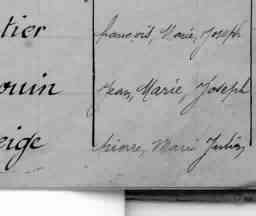 tier françois, Marie, Joseph
ouin Jean, Marie, Joseph
eige pierre, Marie Julien